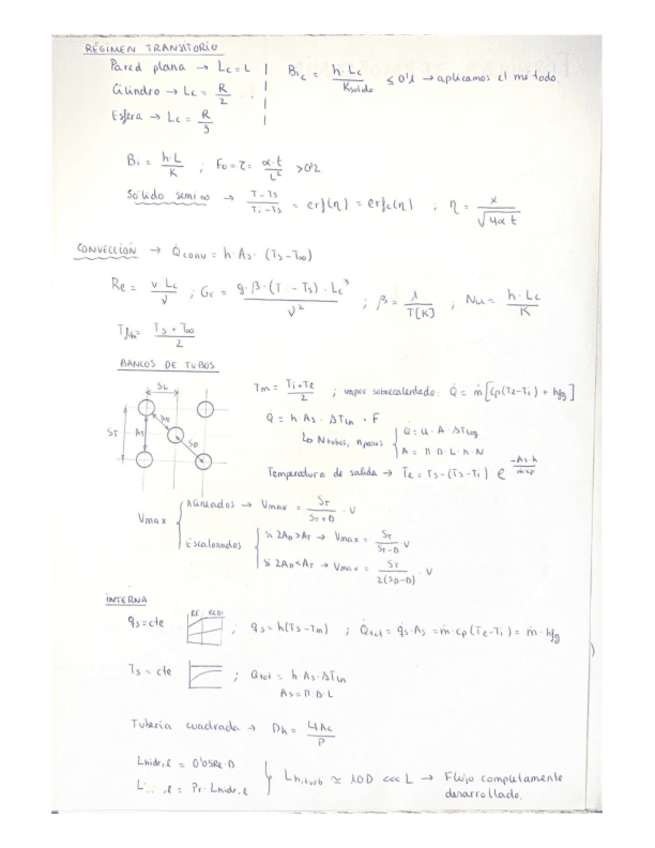 RÉGIMEN TRANSITORIO
Pared plana → Lc = L
Cilindro → Lc = R/2
Esfera → Lc = R/3
Bic = h·Lc / Ksólido ≤ 0'1 → aplicamos el método
Bi = h·L / K ; Fo = τ = α·t / L² > 0'2
Sólido semi∞ → T-Ts / Ti-Ts = erf(η) = erfc(η) ; η = x / √4αt
CONVECCIÓN → Q̇conv = h·As·(Ts-T∞)
Re = v·Lc / ν ; Gr = g·β·(T - Ts)·Lc³ / ν² ; β = 1 / T[K] ; Nu = h·Lc / K
Tfilm = Ts + T∞ / 2
BANCOS DE TUBOS
SL
ST
AT
AD
SD
Tm = Ti+Te / 2 ; vapor sobrecalentado: Q̇ = ṁ[Cp(Te-Ti) + hfg]
Q̇ = h·As·ΔTln·F
↳ Ntubos, npasos { Q̇ = U·A·ΔTlog
A = Π·D·L·n·N
Temperatura de salida → Te = Ts-(Ts-Ti) e^(-As·h / ṁcp)
Vmax
Alineados → Vmax = ST / ST+D · V
Escalonados
Si 2AD>AT → Vmax = ST / ST-D · V
Si 2AD<AT → Vmax = ST / 2(SD-D) · V
INTERNA
q̇s=cte ; q̇s = h(Ts-Tm) ; Q̇tot = q̇s·As = ṁ·cp(Te-Ti) = ṁ·hfg
Ts = cte ; Q̇tot = h·As·ΔTln
As = Π·D·L
Tubería cuadrada → Dh = 4Ac / P
Lhidr,l = 0'05Re·D
L , l = Pr·Lhidr,l
Lh,turb ≃ 10D <<< L → Flujo completamente
desarrollado.